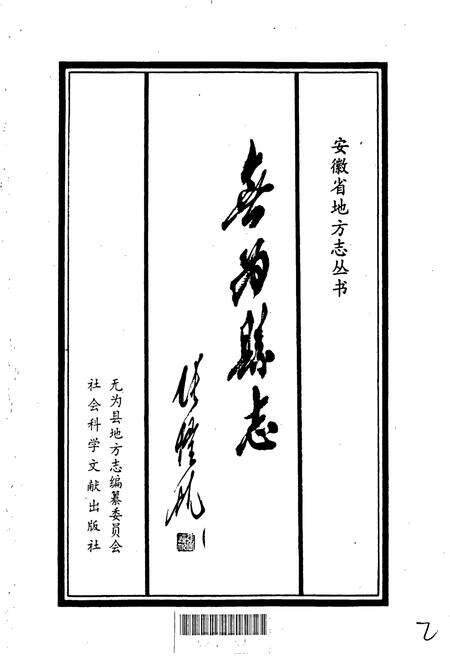 安徽省地方志丛书
無为縣志
无为县地方志编纂委员会
社会科学文献出版社
乙